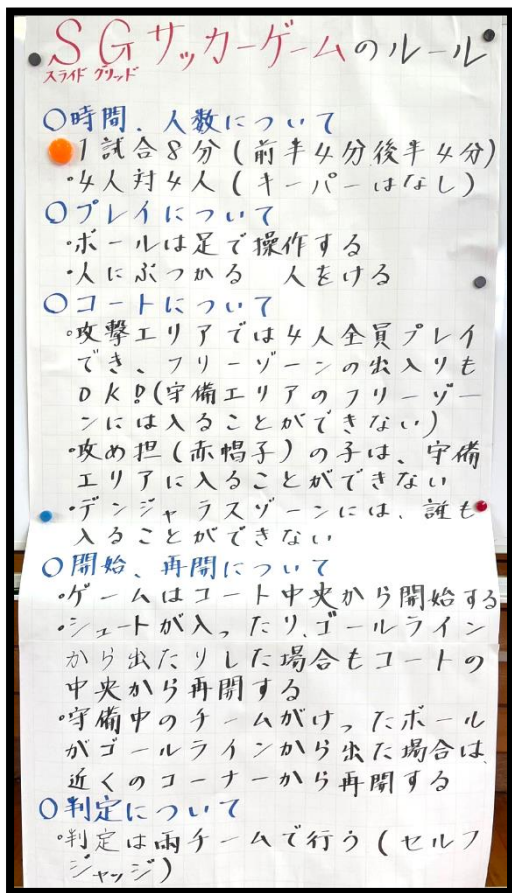 SGサッカーゲームのルール
スライド グリッド
○時間、人数について
1試合8分(前半4分後半4分)
・4人対4人(キーパーはなし)
○プレイについて
・ボールは足で操作する
・人にぶつかる 人をける
○コートについて
・攻撃エリアでは4人全員プレイ
でき、フリーゾーンの出入りも
OK!(守備エリアのフリーゾー
ンには入ることができない)
・攻め担(赤帽子)の子は、守備
エリアに入ることができない
・デンジャラスゾーンには、誰も
入ることができない
○開始、再開について
・ゲームはコート中央から開始する
・シュートが入ったり、ゴールライン
から出たりした場合もコートの
中央から再開する
・守備中のチームがけったボール
がゴールラインから出た場合は、
近くのコーナーから再開する
○判定について
・判定は両チームで行う(セルフ
ジャッジ)